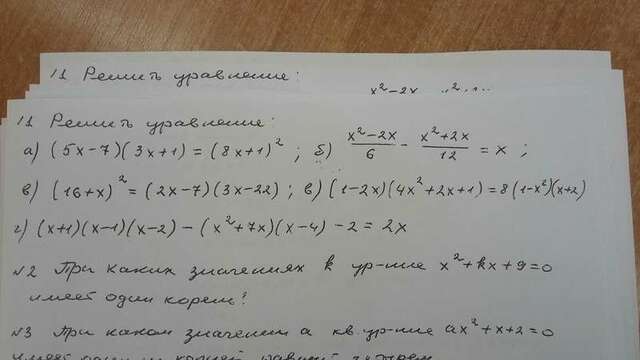 11 Решить уравнение:
x²-2x
11 Решить уравнение:
а) (5x-7)(3x+1) = (8x+1)² ; б) (x²-2x)/6 - (x²+2x)/12 = x ;
в) (16+x)² = (2x-7)(3x-22) ; в) (1-2x)(4x²+2x+1) = 8(1-x²)(x+2)
г) (x+1)(x-1)(x-2) - (x²+7x)(x-4) - 2 = 2x
№2 При каких значениях k ур-ние x²+kx+9=0
имеет один корень?
№3 При каком значении а кв. ур-ние ax²+x+2=0